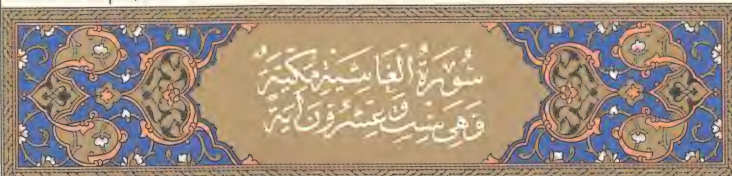 سُورَةُ الْغَاشِيَةِ مَكِّيَّةٌ
وَهِيَ سِتٌّ وَعِشْرُونَ آيَةً